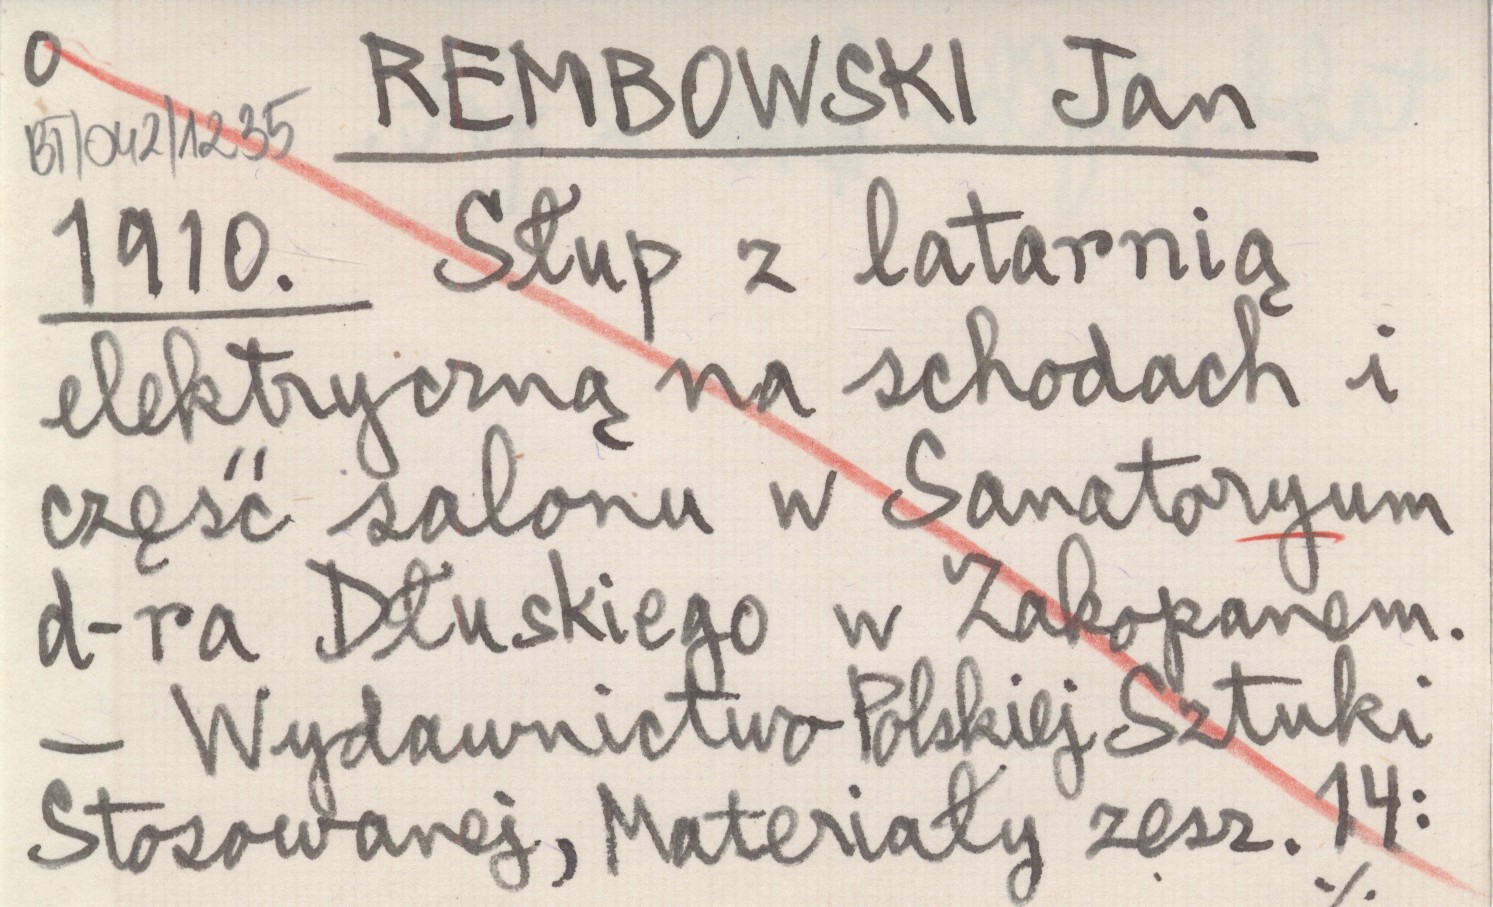 O
REMBOWSKI Jan
BT/042/1235
1910. Słup z latarnią
elektryczną na schodach i
część salonu w Sanatoryum
d-ra Dłuskiego w Zakopanem.
— Wydawnictwo Polskiej Sztuki
Stosowanej, Materiały zesz. 14:
./.